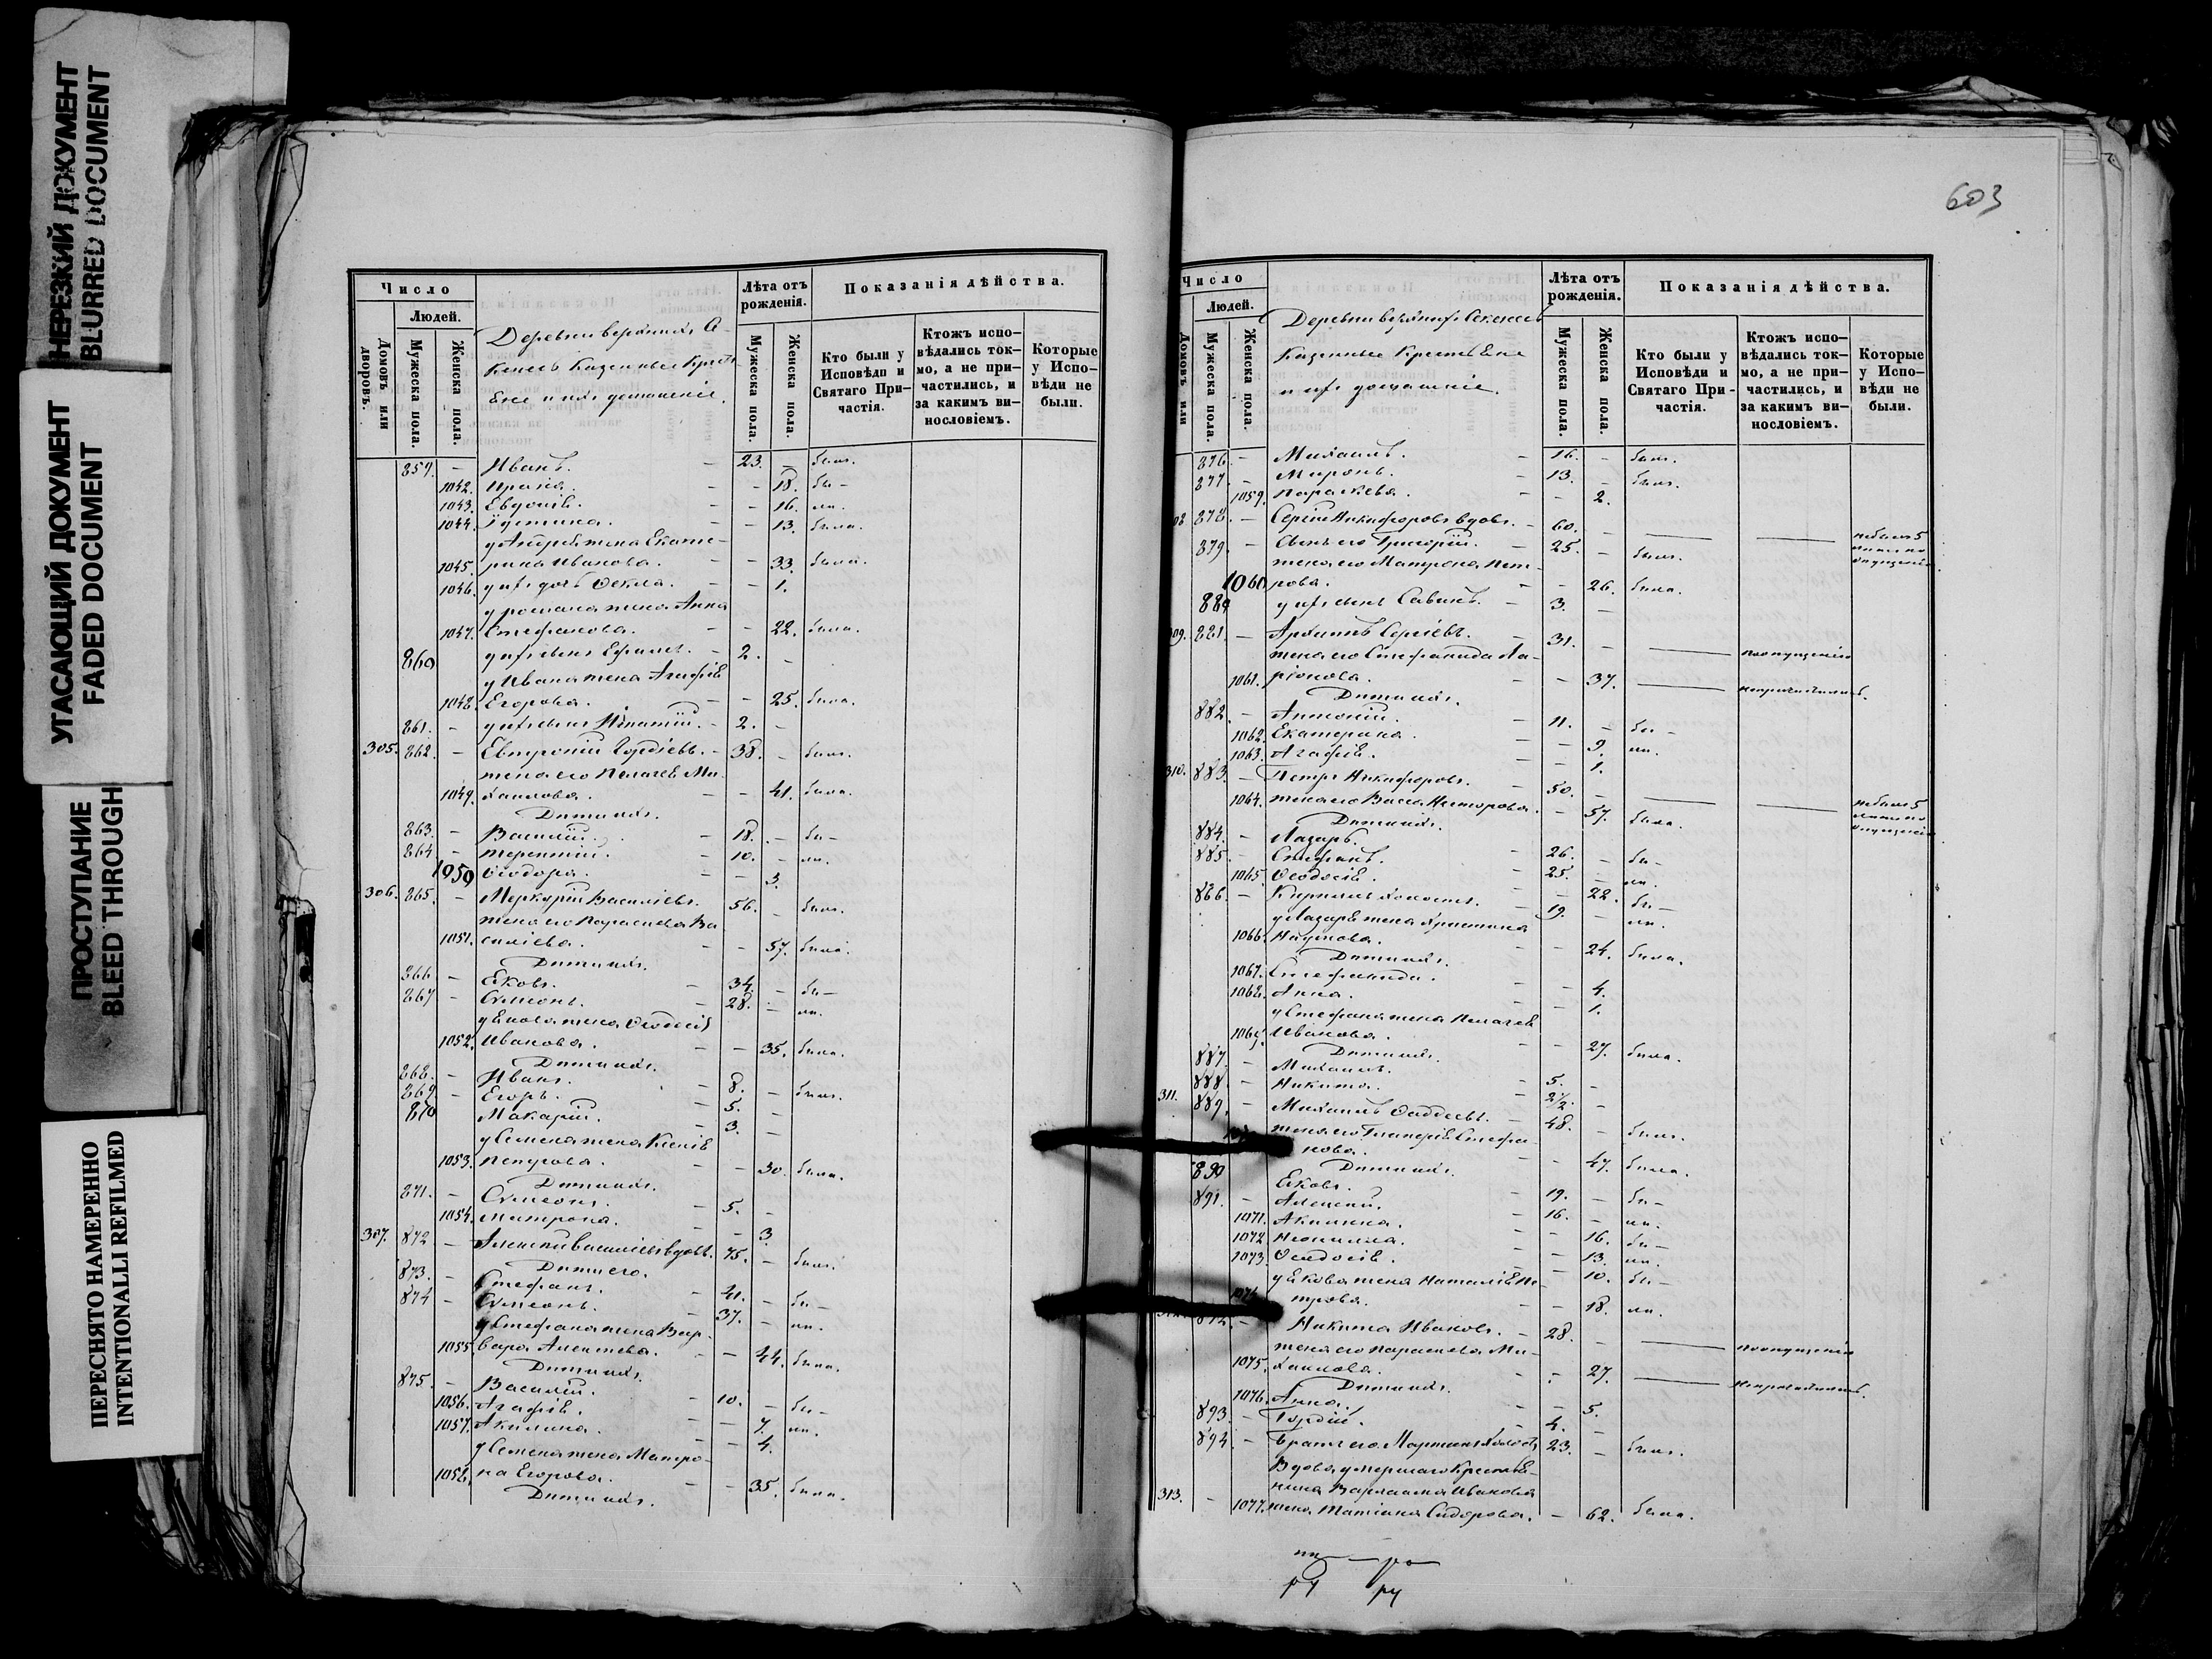 НЕРЕЗКИЙ ДОКУМЕНТ
BLURRED DOCUMENT
УГАСАЮЩИЙ ДОКУМЕНТ
FADED DOCUMENT
ПРОСТУПАНИЕ
BLEED THROUGH
ПЕРЕСНЯТО НАМЕРЕННО
INTENTIONALLI REFILMED
Число
Людей.
Домовъ или дворовъ.
Мужеска пола.
Женска пола.
Деревни верхнихъ
Казенные Крестьяне и ихъ домашніе.
Лѣта отъ рожденія.
Мужеска пола.
Женска пола.
Показанія дѣйства.
Кто были у Исповѣди и Святаго Причастія.
Ктожъ исповѣдались токмо, а не причастились, и за какимъ винословіемъ.
Которые у Исповѣди не были.
859. – Иванъ. – 23. – былъ.
1042. Ирина. – – 18. бы–
1043. Евдокія. – – 16. ли.
1044. Іустина. – – 13. была.
у Андрея жена Екате–
1045. рина Иванова. – – 33. была.
1046. у ихъ дочь Ѳекла. – – 1.
у Романа жена Анна
1047. Стефанова. – – 22. была.
860 у ихъ сынъ Ефимъ. – 2. –
у Ивана жена Агафія
1048. Егорова. – – 25. была.
861. – у ихъ сынъ Игнатій. – 2. –
305. 862. – Евтропій Гордѣевъ. – 38. – былъ.
жена его Пелагея Ми–
1049. хаилова. – – 41. была.
Дѣти ихъ.
863. – Василій. – 18. – бы–
864 – Терентій. – 10. – ли.
1050 Ѳеодора. – – 3.
306. 865. – Меркурій Васильевъ. 56. – былъ.
жена его Параскева Ва
1051. сильева. – – 57. была.
Дѣти ихъ.
866. – Яковъ. – 34. – бы–
867 – Симеонъ. – 28. – ли.
у Якова жена Ѳеодосія
1052. Иванова. – – 35. была.
Дѣти ихъ.
868. – Иванъ. – 8. – былъ.
869. – Егоръ. – 5. –
870 Макарій. – 3. –
у Семена жена Ксенія
1053. Петрова. – – 30. была.
Дѣти ихъ.
871. – Симеонъ. – 5. –
1054. Матрона. – – 3.
307. 872 – Алексѣй Васильевъ вдовъ. 75. – былъ.
Дѣти его.
873. – Стефанъ. – 41. – бы–
874 – Симеонъ. – 37. – ли.
у Стефана жена Вар–
1055. вара Алексѣева. – – 44. была.
Дѣти ихъ.
875. – Василій. – 10. – бы–
1056. Агафія. – – 7. ли.
1057. Акилина. – – 4.
у Семена жена Матро–
1058. на Егорова. – – 35. была.
Дѣти ихъ.
603
Число
Людей.
Домовъ или
Мужеска пола.
Женска пола.
Деревни верхнихъ
Казенные Крестьяне
и ихъ домашніе.
Лѣта отъ рожденія.
Мужеска пола.
Женска пола.
Показанія дѣйства.
Кто были у Исповѣди и Святаго Причастія.
Ктожъ исповѣдались токмо, а не причастились, и за какимъ винословіемъ.
Которые у Исповѣди не были.
876. – Михаилъ. – 16. – былъ.
877. – Миронъ. – 13. – былъ.
1059. Параскева. – – 2.
08 878. – Сергій Никифоровъ вдовъ. – 60. – не былъ 5 лѣтъ по опущенію
879. – Сынъ его Григорій. – 25. – былъ.
жена его Матрона Пет–
1060. рова. – – 26. была.
880 у ихъ сынъ Савинъ. – 3. –
09. 881. – Архиппъ Сергіевъ. – 31. – по опущенію
жена его Стефанида Ла–
1061. ріонова. – – 37.
Дѣти ихъ.
882. – Антоній. – 11. – бы–
1062. Екатерина. – – 9. ли.
1063. Агафія. – – 1.
310. 883. – Петръ Никифоровъ. 50. – не былъ 5 лѣтъ по опущенію
1064. жена его Васса Несторова. – 57. была.
Дѣти ихъ.
884. – Лазарь. – 26. – бы–
885. – Стефанъ. – 25. – ли.
1065. Ѳеодосія. – – 22. бы–
886. – Кириллъ холостъ. – 19. – ли.
у Лазаря жена Христина
1066. Наумова. – – 24. была.
Дѣти ихъ.
1067. Стефанида. – – 4.
1068. Анна. – – 1.
у Стефана жена Пелагея
1069. Иванова. – – 27. была.
Дѣти ихъ.
887. – Михаилъ. – 5. –
888. – Никита. – 2½. –
311. 889. – Михаилъ Ѳаддеевъ. – 48. – былъ.
жена его Гликерія Стефа–
нова. – – 47. была.
Дѣти ихъ.
890 Яковъ. – 19. – бы–
891. – Алексѣй. – 16. – ли.
1071. Акилина. – – 16. бы–
1072 Неонилла. – – 13. ли.
1073. Ѳеодосія. – – 10. бы–
у Якова жена Наталія Пе–
1074. трова. – – 18. ли.
892. – Никита Ивановъ. – 28. – по опущенію
жена его Параскева Ми–
1075. хаилова. – – 27.
Дѣти ихъ.
1076. Анна. – – 5.
893. – Гордій. – 4. –
894. – Братъ его Мартинъ холостъ 23. – былъ.
Вдова умершаго Крестья–
нина Варлаама Иванова
313. – 1077. жена Татіана Сидорова. – 62. была.